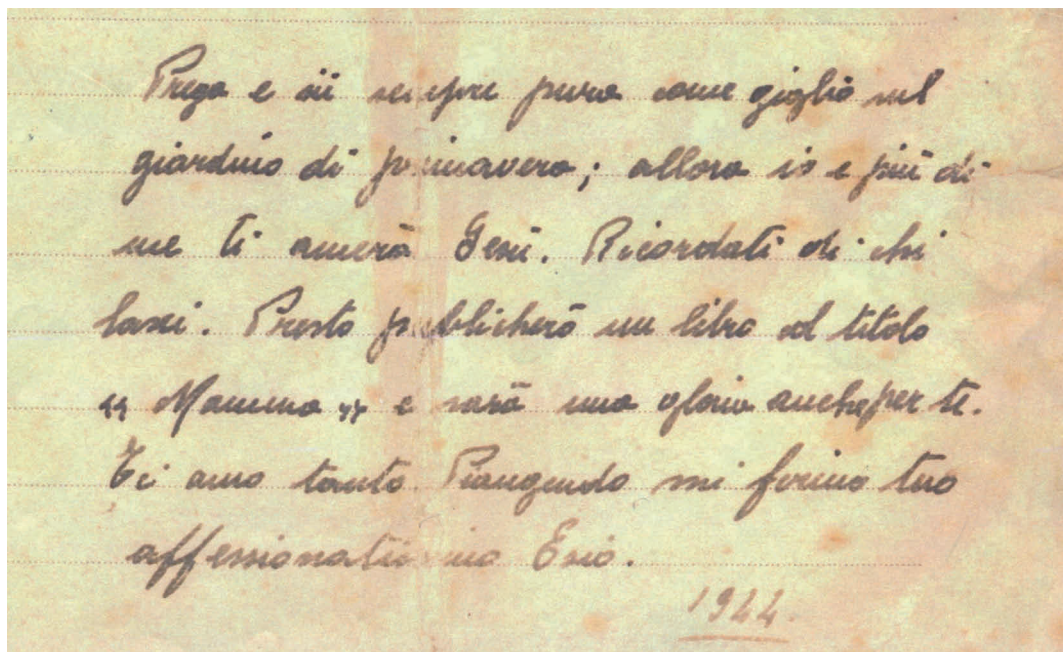 Prega e sii sempre pura come giglio nel
giardino di primavera; allora io e più di
me ti amerà Gesù. Ricordati di chi
lasci. Presto pubblicherò un libro dal titolo
"Mamma" e sarà una gloria anche per te.
Ti amo tanto. Piangendo mi firmo tuo
affessionatissimo Esio.
1944.